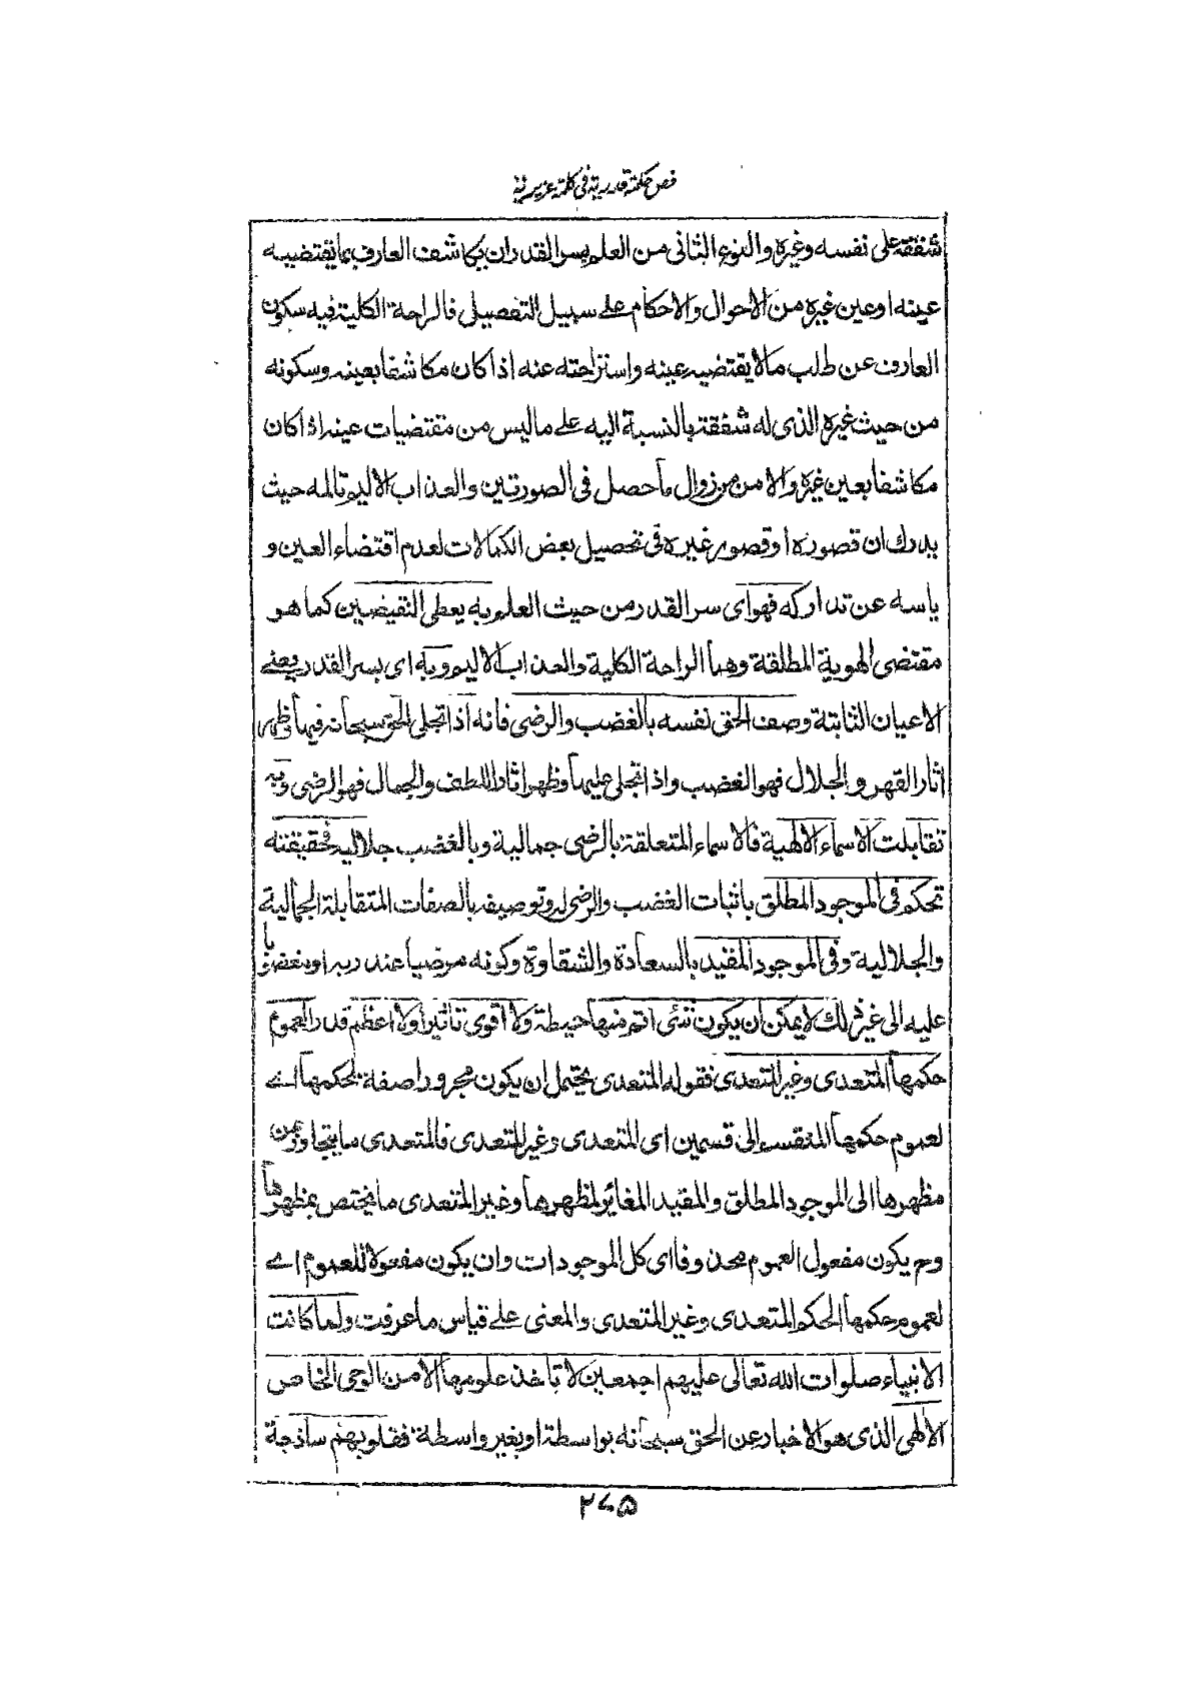 فص حكمة قدرية في كلمة عزيرية
شفقة على نفسه وغيره والنوع الثانى من العلم بسر القدر ان يكاشف العارف بما يقتضيه
عينه او عين غيره من الاحوال والاحكام على سبيل التفصيل فالراحة الكلية فيه سكون
العارف عن طلب ما لا يقتضيه عينه واستراحته عنه اذا كان مكاشفا بعينه وسكونه
من حيث غيره الذى له شفقة بالنسبة اليه على ما ليس من مقتضيات عينه اذا كان
مكاشفا بعين غيره والامن من زوال ما حصل فى الصورتين والعذاب الاليم تالمه حيث
يدرك ان قصوره او قصور غيره فى تحصيل بعض الكمالات لعدم اقتضاء العين و
ياسه عن تداركه فهو اى سر القدر من حيث العلم به يعطى النقيضين كما هو
مقتضى الهوية المطلقة وهما الراحة الكلية والعذاب الاليم وبه اى بسر القدر يعنے
الاعيان الثابتة وصف الحق نفسه بالغضب والرضى فانه اذا تجلى الحق سبحانه فيها وظهر
اثار القهر والجلال فهو الغضب واذا تجلى عليها وظهر اثار اللطف والجمال فهو الرضى وبه
تقابلت الاسماء الالهية فالاسماء المتعلقة بالرضى جمالية وبالغضب جلالية فحقيقته
تحكم فى الموجود المطلق باثبات الغضب والرضى له وتوصيفه بالصفات المتقابلة الجمالية
والجلالية وفى الموجود المقيد بالسعادة والشقاوة وكونه مرضيا عند ربه او مغضوبا
عليه الى غير ذلك لا يمكن ان يكون شئ اتم منها حيطة ولا اقوى تاثيرا ولا اعظم قدرا لعموم
حكمها المتعدى وغير المتعدى فقوله المتعدى يحتمل ان يكون مجرورا صفة لحكمها اے
لعموم حكمها المنقسم الى قسمين اى المتعدى وغير المتعدى فالمتعدى ما يتجاوز عن
مظهرها الى الموجود المطلق والمقيد المغائر لمظهرها وغير المتعدى ما يختص بمظهرها
وح يكون مفعول العموم محذوفا اى كل الموجودات وان يكون مفعولا للعموم اے
لعموم حكمها الحكم المتعدى وغير المتعدى والمعنى على قياس ما عرفت ولما كانت
الانبياء صلوات الله تعالى عليهم اجمعين لا تاخذ علومها الا من الوحى الخاص
الالهى الذى هو الاخبار عن الحق سبحانه بواسطة او بغير واسطة فقلوبهم ساذجة
۲۶۵